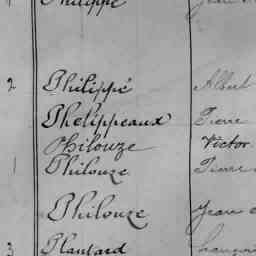 Philippe Jean
2 Philippé Albert
Phelippeaux Pierre
Philouze Victor
1 Philouze Pierre
Philouze Jean
3 Plantard